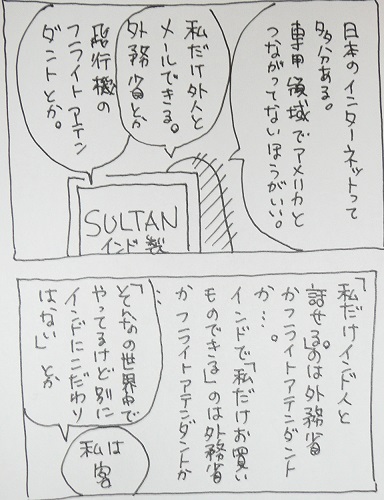 日本のインターネットって
多分ある。
専用領域でアメリカと
つながってないほうがいい。
私だけ外人と
メールできる。
外務省とか
飛行機の
フライトアテン
ダントとか。
SULTAN
インド製
「私だけインド人と
話せる。」のは外務省
かフライトアテンダント
か…。
インドで「私だけお買い
ものできる」のは外務省
かフライトアテンダントか
…
「そんなの世界中で
やってるけど別に
インドにこだわり
はない」とか
私は
客